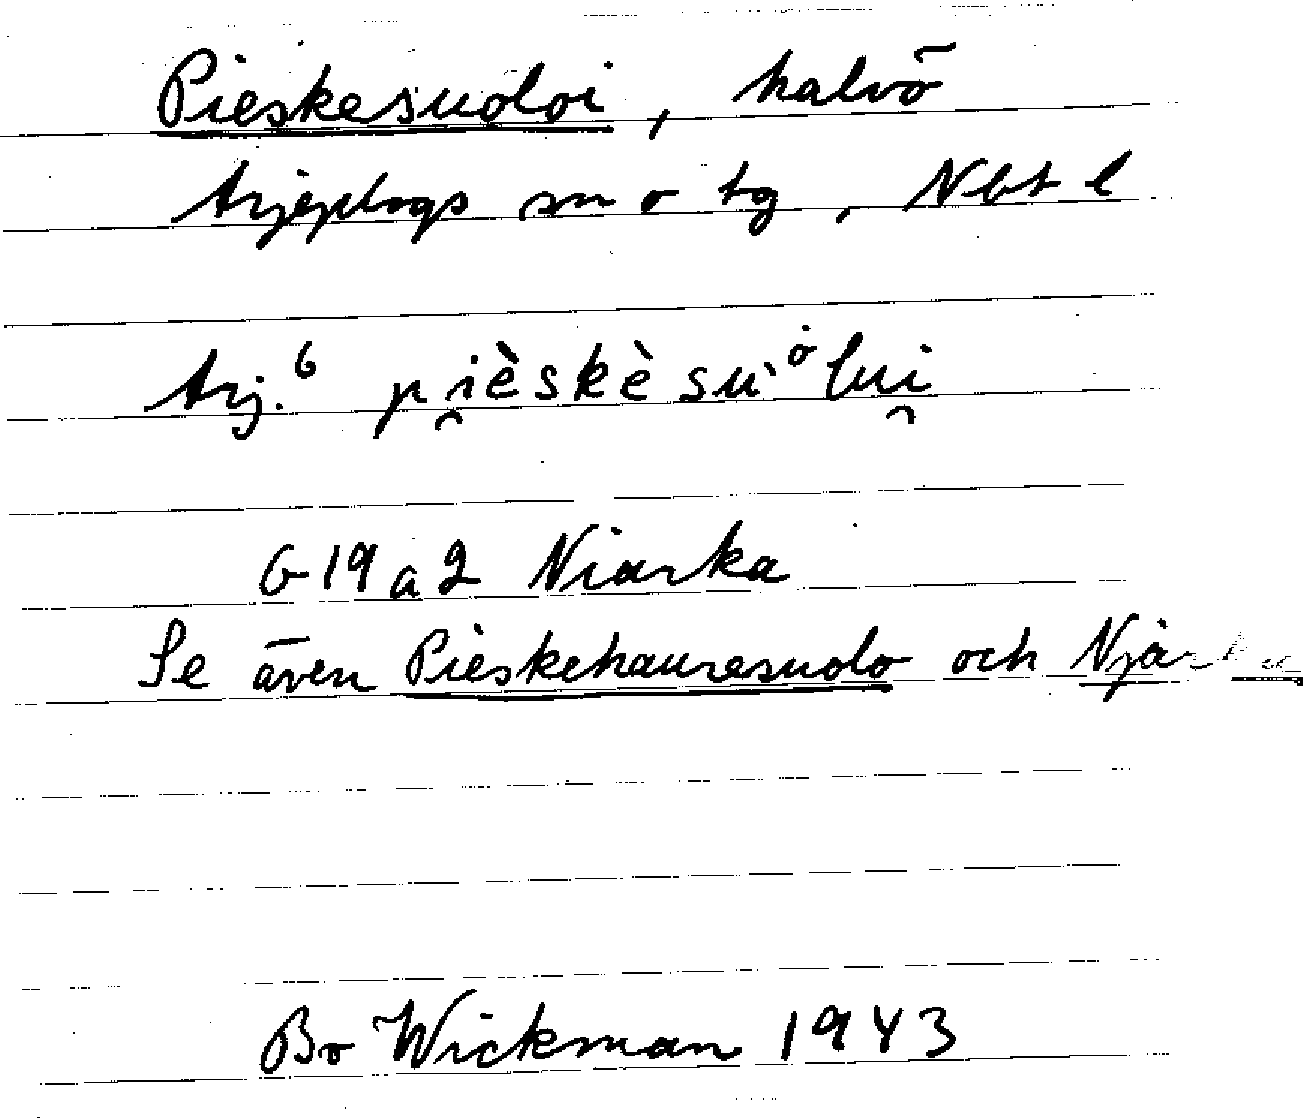 Pieskesuoloi, halvö
Arjeplogs sn o tg, Nbt l
Arj.⁶ pi̯èskèsu̇̀ᵒlui̯
G 19 a 2 Niarka
Se även Pieskehauresuolo och Njarka
Bo Wickman 1943